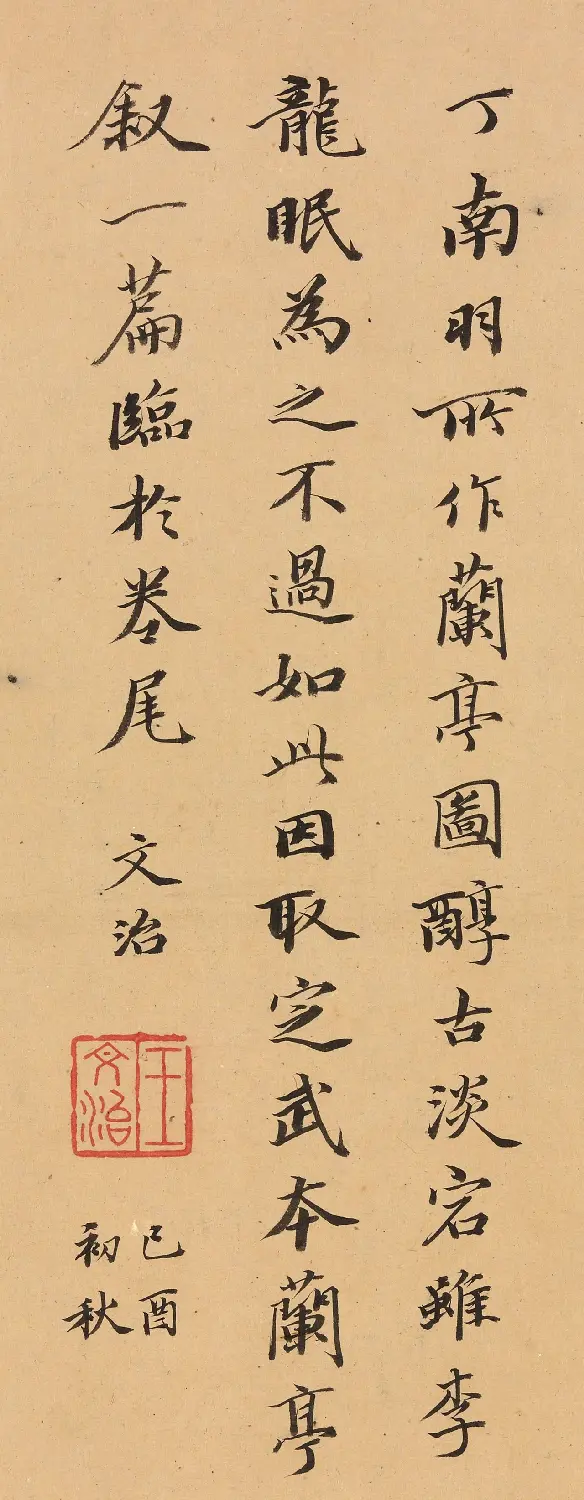 丁南羽所作蘭亭圖醇古淡宕雖李
龍眠為之不過如此因取定武本蘭亭
叙一篇臨於卷尾
文治
王文治
己酉
初秋